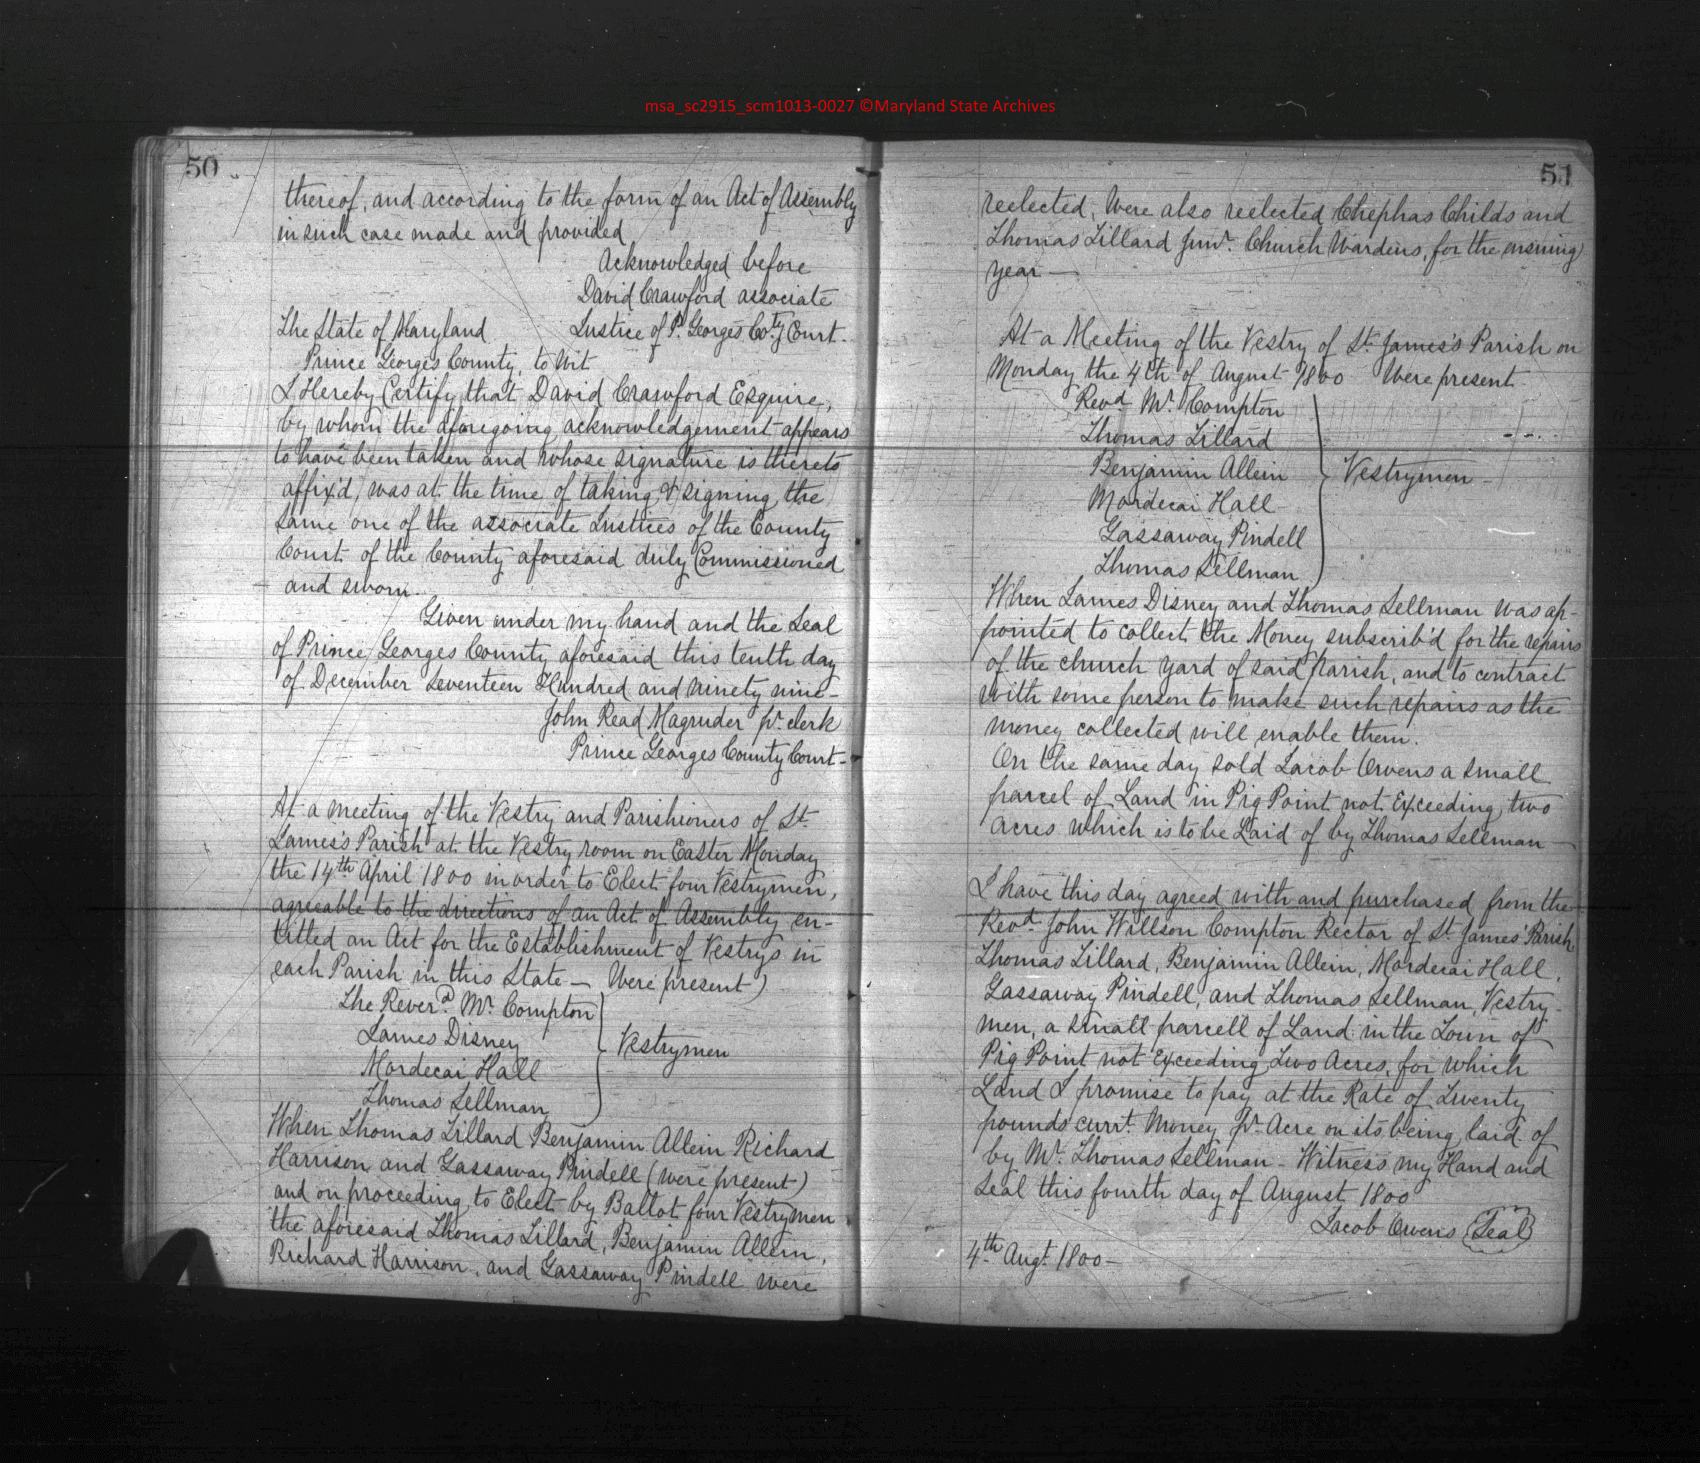 msa_sc2915_scm1013-0027 ©Maryland State Archives
50
thereof, and according to the form of an Act of Assembly
in such case made and provided
Acknowledged before
David Crawford associate
The State of Maryland Justice of P. Georges Coty Court-
Prince Georges County, to Wit
I Hereby Certify that David Crawford Esquire,
by whom the aforegoing acknowledgement appears
to have been taken and whose signature is thereto
affix'd, was at the time of taking & signing the
same one of the associate Justices of the County
Court of the County aforesaid duly Commissioned
and sworn.
Given under my hand and the Seal
of Prince Georges County aforesaid this tenth day
of December Seventeen Hundred and ninety nine-
John Read Magruder pr. clerk
Prince Georges County Court-
At a meeting of the Vestry and Parishioners of St.
James's Parish at the Vestry room on Easter Monday
the 14th April 1800 in order to Elect four Vestrymen,
agreeable to the directions of an Act of Assembly en-
titled an Act for the Establishment of Vestrys in
each Parish in this State— Were present)
The Reverd. Mr. Compton
James Disney
Vestrymen
Mordecai Hall
Thomas Sellman
When Thomas Tillard Benjamin Allein Richard
Harrison and Gassaway Pindell (were present)
and on proceeding to Elect by Ballot four Vestrymen
the aforesaid Thomas Tillard, Benjamin Allein,
Richard Harrison, and Gassaway Pindell were
51
reelected, Were also reelected Chephas Childs and
Thomas Tillard Junr. Church Wardens, for the ensuing
year—
At a Meeting of the Vestry of St. James's Parish on
Monday the 4th of August 1800 Were present
Revd. Mr. Compton
Thomas Tillard
Benjamin Allein
Vestrymen-
Mordecai Hall
Gassaway Pindell
Thomas Sellman
When James Disney and Thomas Sellman was ap-
pointed to collect the Money subscrib'd for the repairs
of the church yard of said parish, and to contract
with some person to make such repairs as the
money collected will enable them.
On the same day sold Jacob Owens a small
parcel of Land in Pig Point not Exceeding two
acres which is to be Laid of by Thomas Sellman—
I have this day agreed with and purchased from the
Revd. John Willson Compton Rector of St. James' Parish
Thomas Tillard, Benjamin Allein, Mordecai Hall,
Gassaway Pindell, and Thomas Sellman, Vestry-
men, a small parcell of Land in the Town of
Pig Point not Exceeding Two Acres, for which
Land I promise to pay at the Rate of Twenty
pounds currt. Money pr. Acre on its being laid of
by Mr. Thomas Sellman- Witness my Hand and
Seal this fourth day of August 1800
Jacob Owens Seal
4th Augt. 1800-